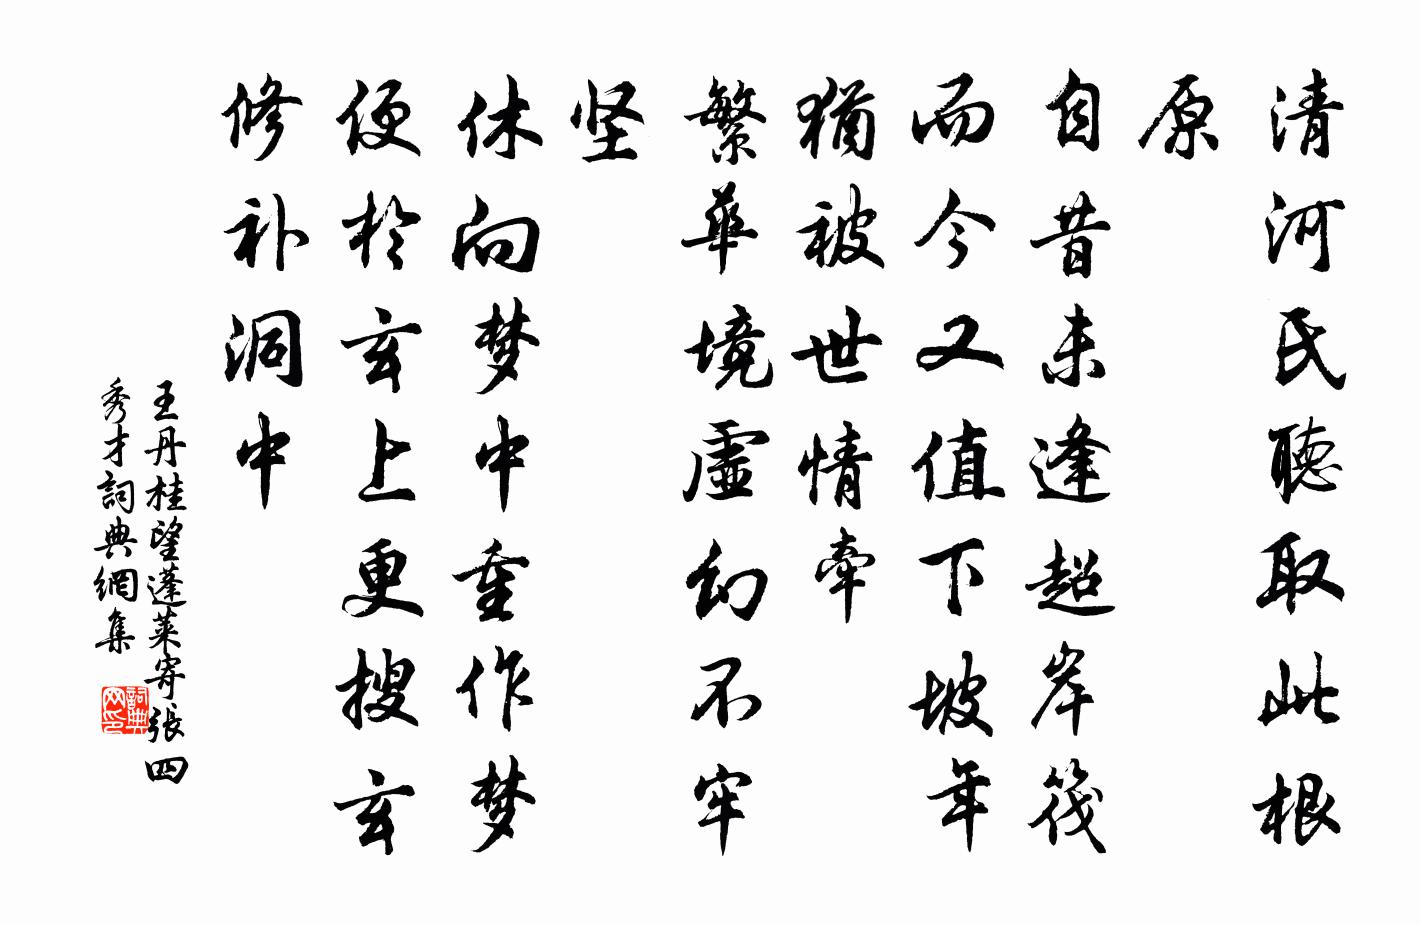 清河氏聽取此根
原
自昔未逢超岸筏
而今又值下坡年
猶被世情牽
繁華境虛幻不牢
坚
休向梦中重作梦
便於玄上更搜玄
修补洞中
王丹桂望蓬莱寄張四
秀才詞典網集
詞典
网印